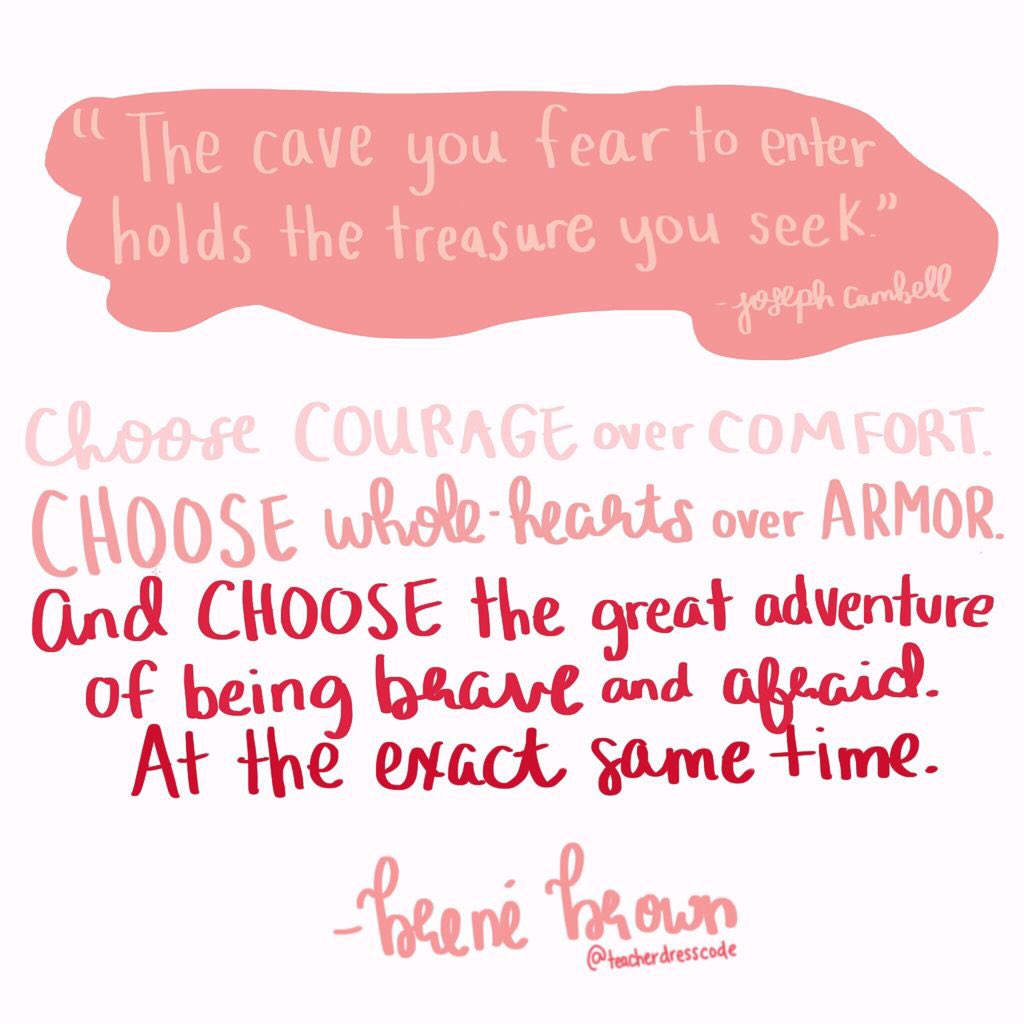 “The cave you fear to enter
holds the treasure you seek.”
-joseph cambell
Choose COURAGE over COMFORT.
CHOOSE whole-hearts over ARMOR.
And CHOOSE the great adventure
of being brave and afraid.
At the exact same time.
-brené brown
@teacherdresscode